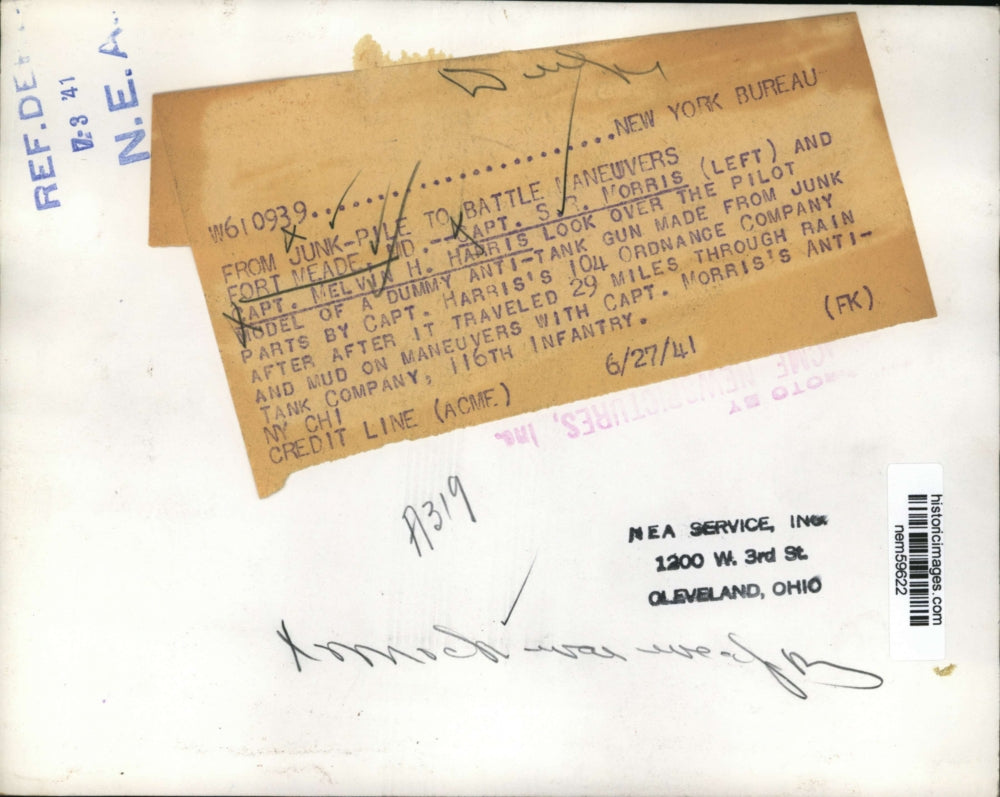 REF.DE
7-3 '41
N.E.A.
W610939..............................NEW YORK BUREAU
FROM JUNK-PILE TO BATTLE MANEUVERS
FORT MEADE, MD.--CAPT. S.R. MORRIS (LEFT) AND
CAPT. MELVIN H. HARRIS LOOK OVER THE PILOT
MODEL OF A DUMMY ANTI-TANK GUN MADE FROM JUNK
PARTS BY CAPT. HARRIS'S 104 ORDNANCE COMPANY
AFTER AFTER IT TRAVELED 29 MILES THROUGH RAIN
AND MUD ON MANEUVERS WITH CAPT. MORRIS'S ANTI-
TANK COMPANY, 116TH INFANTRY.
NY CHI 6/27/41 (FK)
CREDIT LINE (ACME)
OTO BY
ACME NEWSPICTURES, Inc.
A319
NEA SERVICE, INC.
1200 W. 3rd St.
CLEVELAND, OHIO
historicimages.com
nem59622